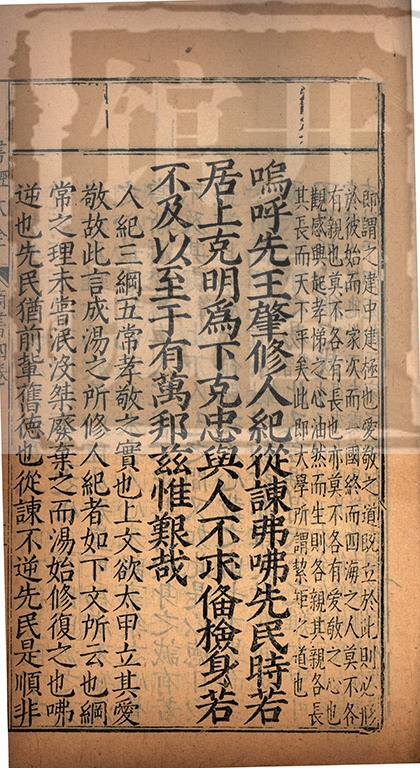 即謂之建中建極也愛敬之道既立於此則必形
於彼始而一家次而一國終而四海之人莫不各
有親也莫不各有長也亦莫不各有愛敬之心也
觀感興起孝悌之心油然而生則各親其親各長
其長而天下平矣此即大學所謂絜矩之道也
嗚呼先王肇修人紀從諫弗咈先民時若
居上克明爲下克忠與人不求俻檢身若
不及以至于有萬邦兹惟艱哉
人紀三綱五常孝敬之實也上文欲太甲立其愛
敬故此言成湯之所修人紀者如下文所云也綱
常之理未嘗泯没桀廢棄之而湯始修復之也咈
逆也先民猶前輩舊德也從諫不逆先民是順非
書經大全 商書四卷